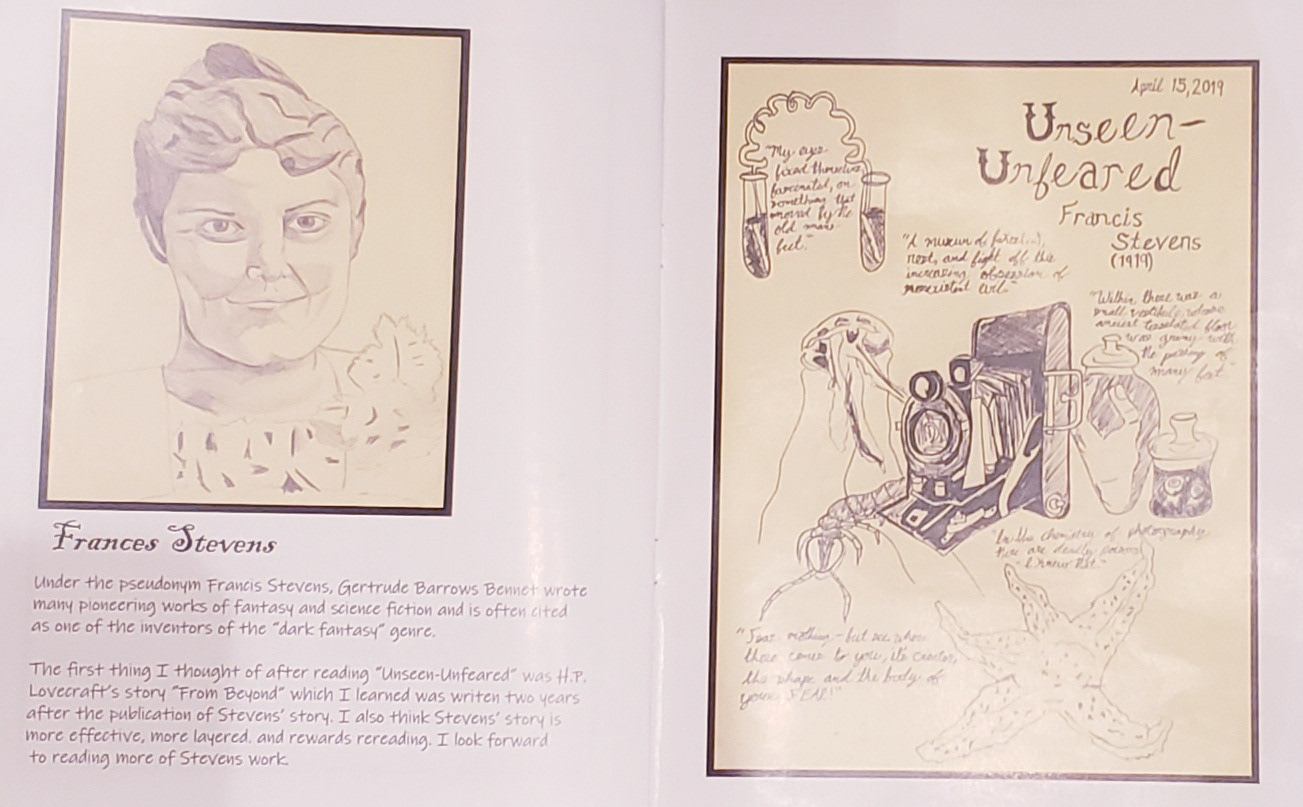 Frances Stevens
Under the pseudonym Francis Stevens, Gertrude Barrows Bennet wrote
many pioneering works of fantasy and science fiction and is often cited
as one of the inventors of the "dark fantasy" genre.
The first thing I thought of after reading "Unseen-Unfeared" was H.P.
Lovecraft's story "From Beyond" which I learned was writen two years
after the publication of Stevens' story. I also think Stevens' story is
more effective, more layered, and rewards rereading. I look forward
to reading more of Stevens work.
April 15, 2019
Unseen-
Unfeared
Francis
Stevens
(1919)
"My eyes
fixed themselves,
fascinated, on
something that
moved by the
old man's
feet."
"A museum of
and fight off this
increasing obsession of
nonexistent evil."
"Within there was a
small vestibule, whose
ancient tesselated floor
was grimy with
the passing of
many feet"
"In the chemistry of photography
there are deadly poisons
- I knew that."
"Fear nothing - but see where
there comes to you, its creator,
the shape and the body of
your FEAR!"